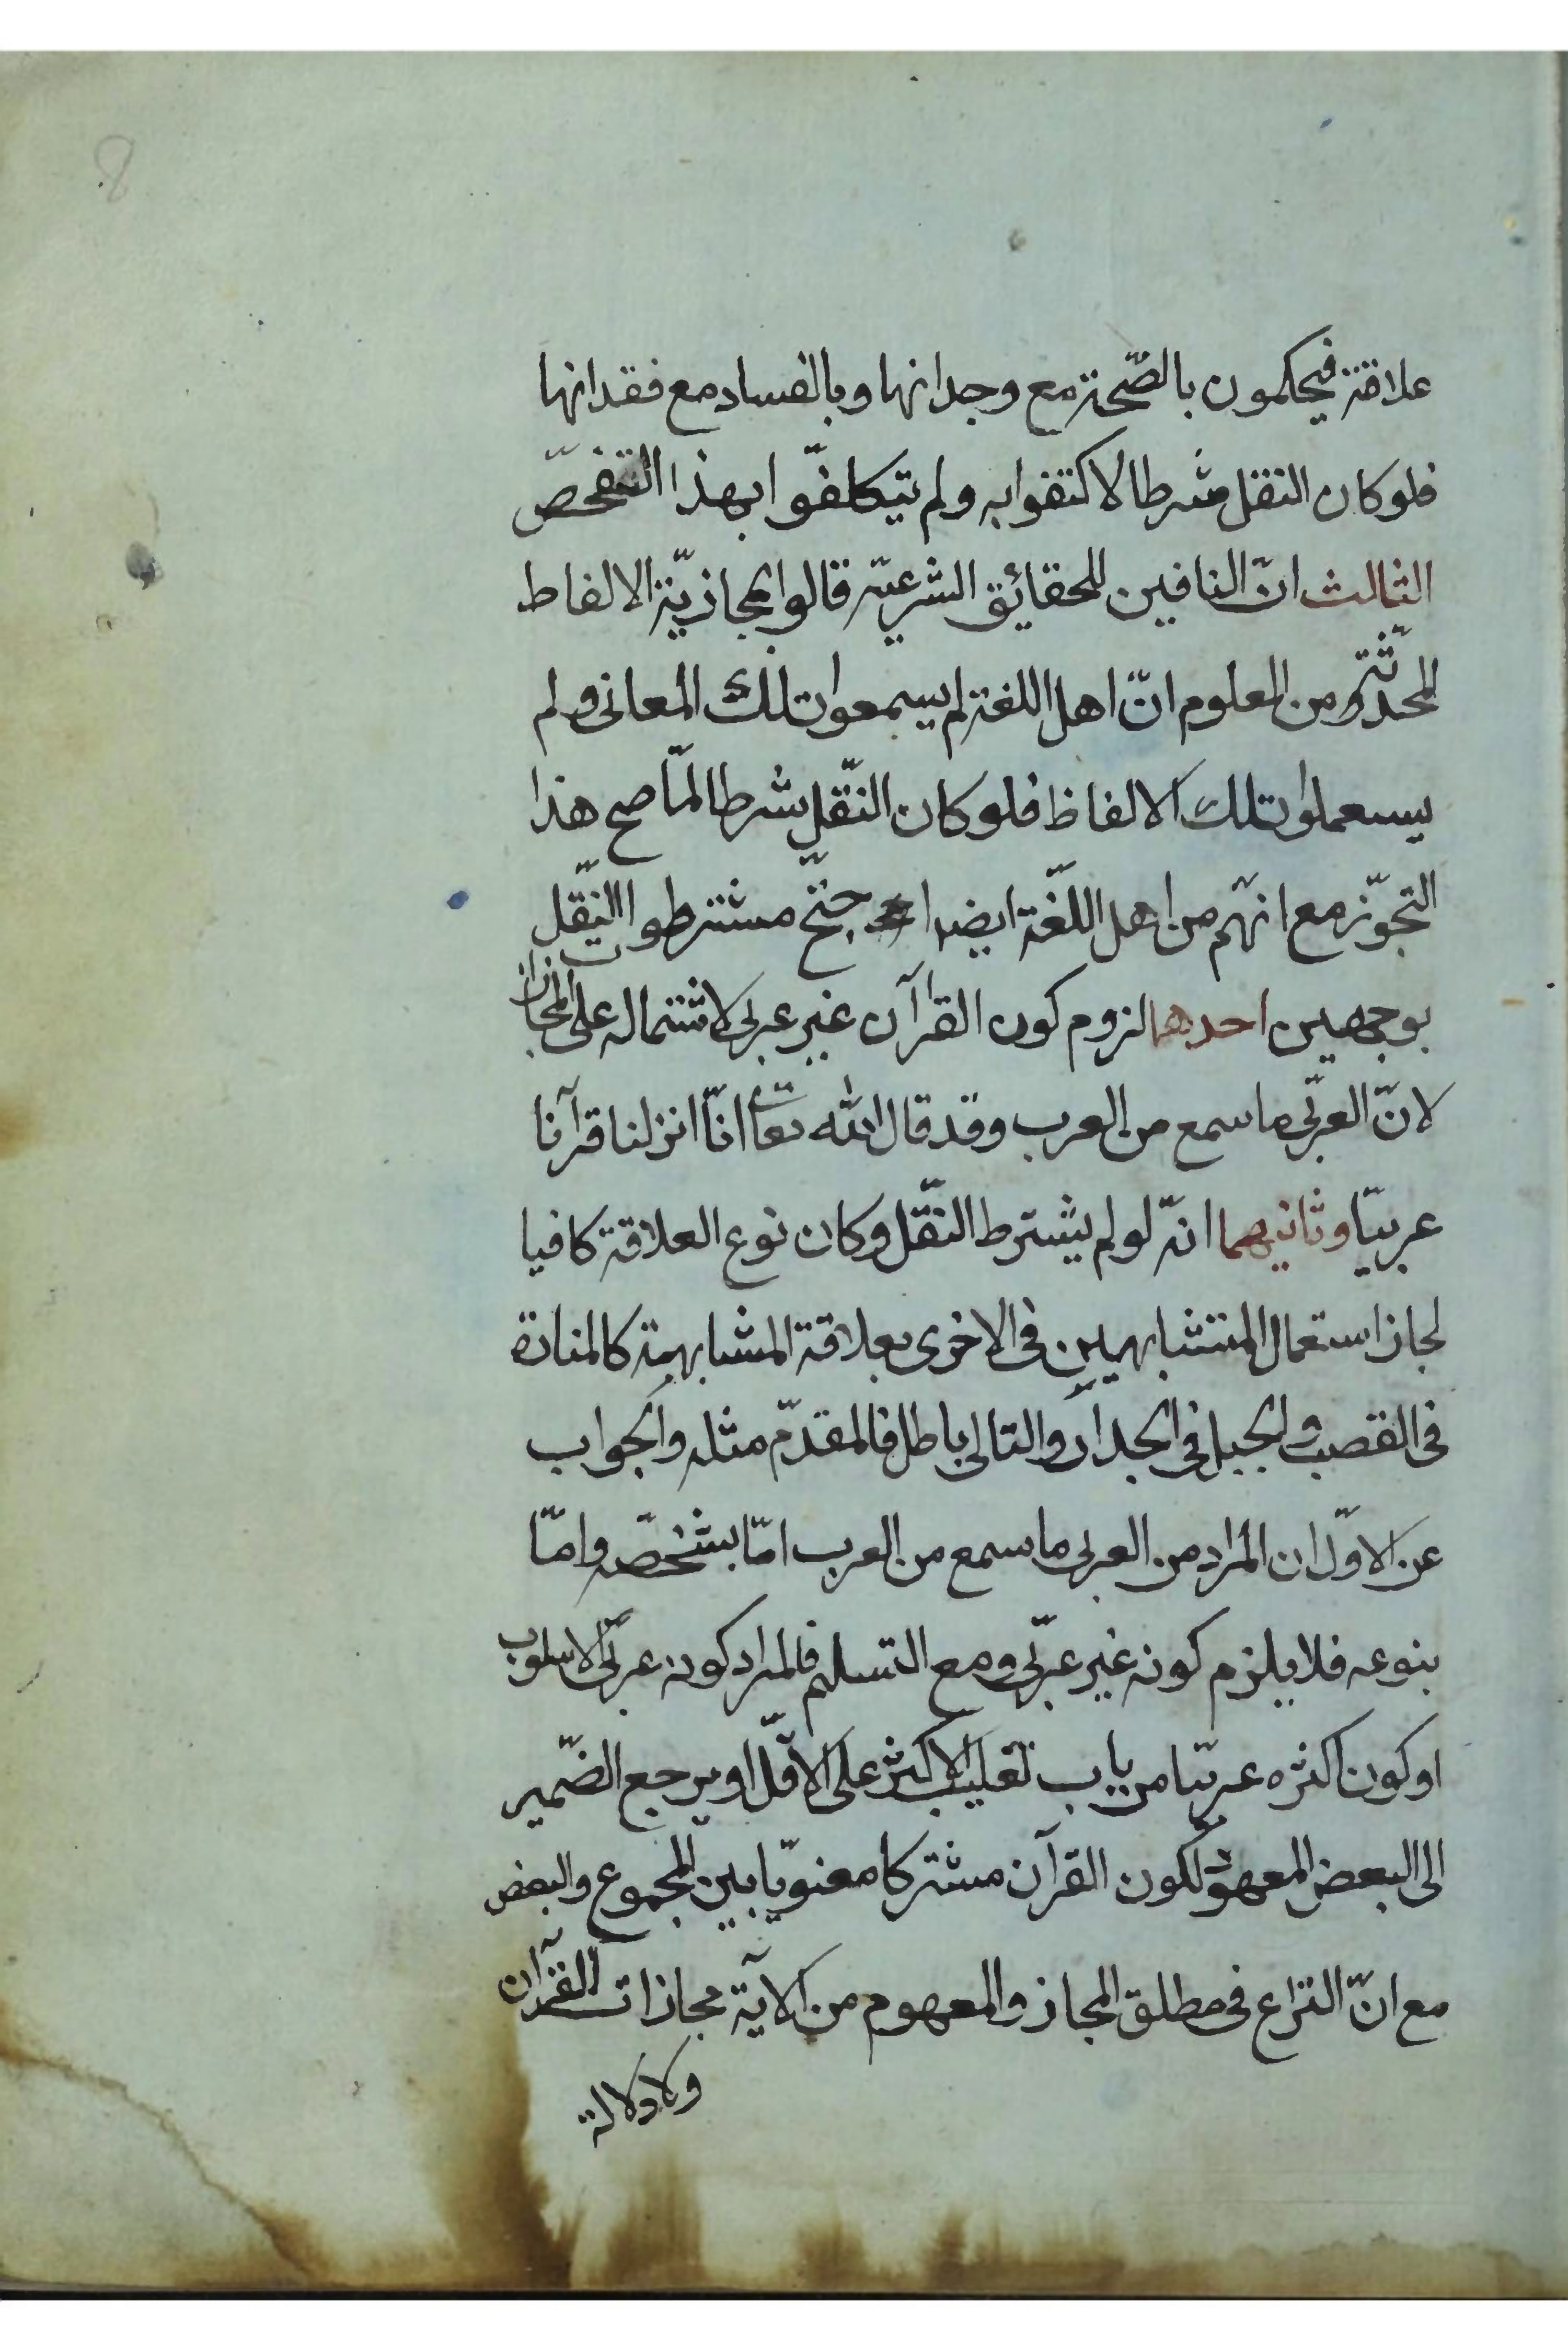 8
علاقة فيحكمون بالصّحة مع وجدانها وبالفساد مع فقدانها
فلو كان النقل شرطا لاكتفوا به ولم يتكلفّوا بهذا التفحّص
الثالث انّ النافين للحقائق الشرعيّة قالوا بمجازيّة الالفاط
المحدثة ومن المعلوم انّ اهل اللغة لم يسمعوا تلك المعانى ولم
يستعملوا تلك الالفاظ فلو كان النّقل شرطا لمّا صح هذا
التجوّز مع انهّم من اهل اللّغة ايضا احتجّ مشترطوا النّقل
بوجهين احدهما لزوم كون القرآن غير عربى لاشتماله على المجازات
لانّ العربّى ما سمع من العرب وقد قال الله تعا انّا انزلنا قرآنا
عربيّا وثانيهما انّه لو لم يشترط النّقل وكان نوع العلاقة كافيا
لجاز استعمال المتشابهين فى الاخرى بعلاقة المشابهة كالمنارة
فى القصب والجبل فى الجدار والتالى باطل فالمقدّم مثله والجواب
عن الاوّل ان المراد من العربى ما سمع من العرب امّا بشخصّه وامّا
بنوعه فلا يلزم كونه غير عربّى ومع التسليم فالمراد كونه عربّى الاسلوب
او كون اكثره عربيّا من باب تغليب الاكثر على الاقلّ او يرجع الضّمير
الى البعض المعهود لكون القرآن مشتركا معنويّا بين المجموع والبعض
مع انّ النزاع فى مطلق المجاز والمعهوم من الآية مجازات القرآن
ولا دلالة